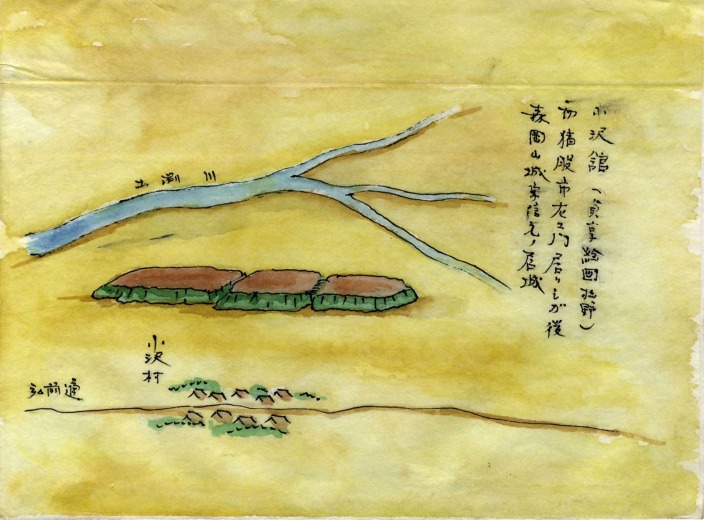 小沢館（貞享絵図私野）
初猪股市左エ門居りしが後
森岡山城崇信元ノ居城
土渕川
小沢村
弘前道